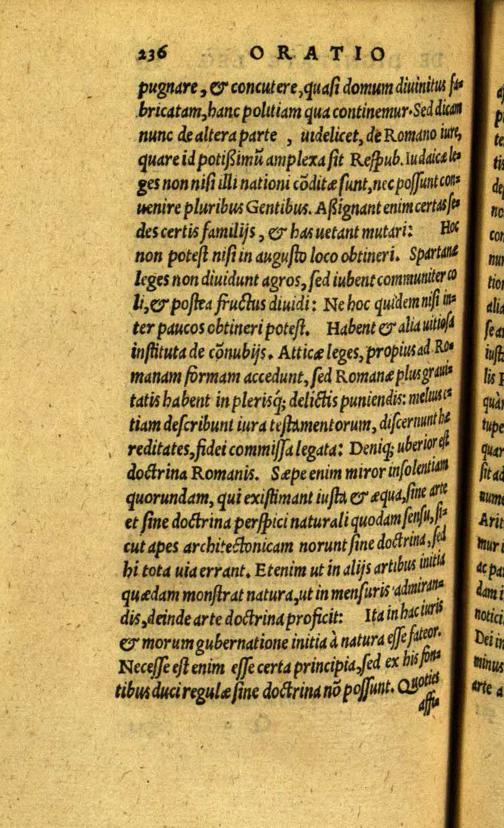 236 ORATIO
pugnare, & concutere, quasi domum diuinitus fa-
bricatam, hanc politiam qua continemur. Sed dicam
nunc de altera parte, uidelicet, de Romano iure,
quare id potißimũ amplexa sit Resp̃ub. Iudaicæ le-
ges non nisi illi nationi cõditæ sunt, nec possunt con-
uenire pluribus Gentibus. Aßignant enim certas se-
des certis familijs, & has uetant mutari: Hoc
non potest nisi in augusto loco obtineri. Spartanæ
leges non diuidunt agros, sed iubent communiter co
li, & postea fructus diuidi: Ne hoc quidem nisi in-
ter paucos obtineri potest. Habent & alia uitiosa
instituta de cõnubijs. Atticæ leges, propius ad Ro-
manam formam accedunt, sed Romanæ plus graui-
tatis habent in plerisq; delictis puniendis: melius e-
tiam describunt iura testamentorum, discernunt hæ
reditates, fidei commissa legata: Deniq; uberior est
doctrina Romanis. Sæpe enim miror insolentiam
quorundam, qui existimant iusta & æqua, sine arte
et sine doctrina perspici naturali quodam sensu, si-
cut apes architectonicam norunt sine doctrina, sed
hi tota uia errant. Etenim ut in alijs artibus initia
quædam monstrat natura, ut in mensuris admiran-
dis, deinde arte doctrina proficit: Ita in hac iuris
& morum gubernatione initia à natura esse fateor.
Necesse est enim esse certa principia, sed ex his fon-
tibus duci regulæ sine doctrina nõ possunt. Quoties
affir